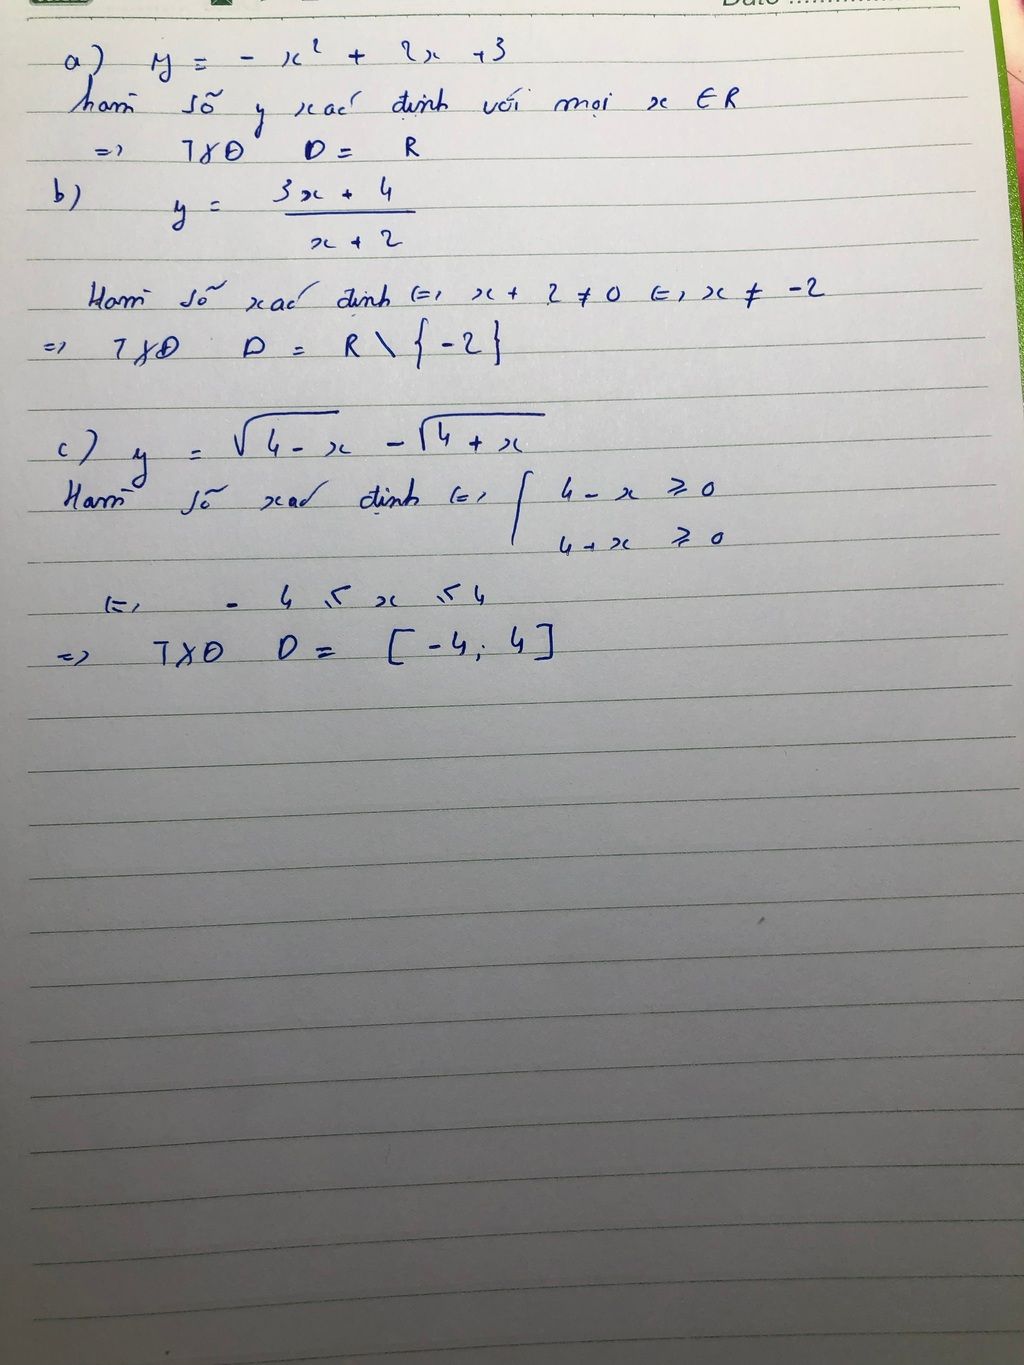 Date ..............
a) y = - x² + 2x + 3
hàm số y xác định với mọi x ∈ R
=> TXĐ D = R
b) y = \frac{3x + 4}{x + 2}
Hàm số xác định <=> x + 2 ≠ 0 <=> x ≠ -2
=> TXĐ D = R \ { -2 }
c) y = √(4 - x) - √(4 + x)
Hàm số xác định <=> { 4 - x ≥ 0
4 + x ≥ 0
<=> - 4 ≤ x ≤ 4
=> TXĐ D = [ -4; 4 ]